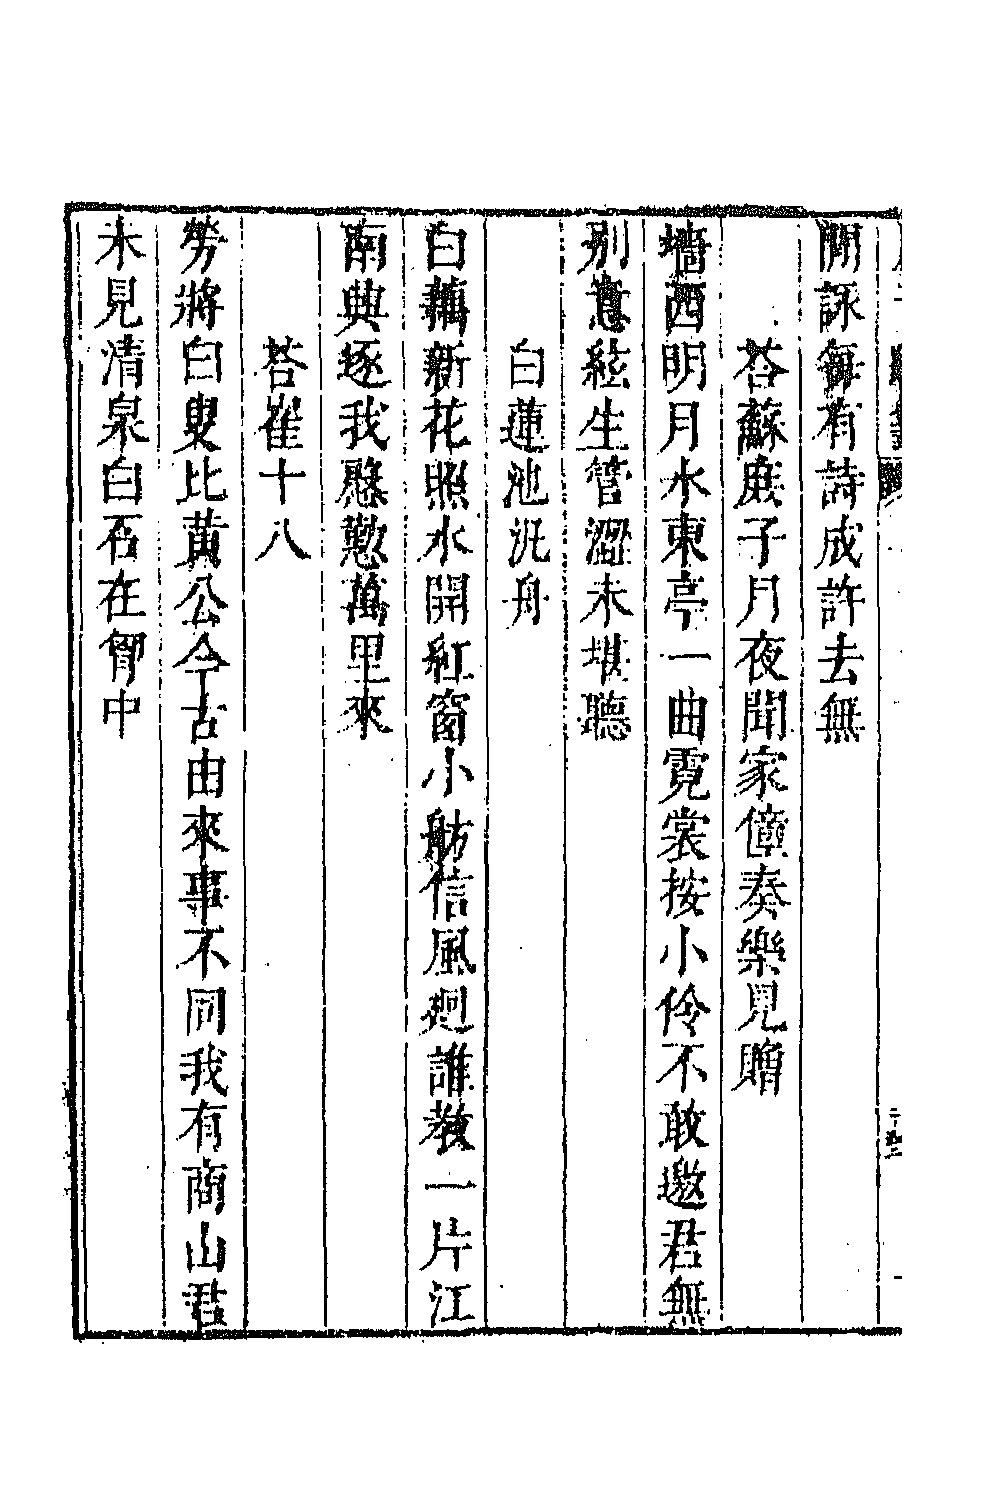 閒詠每有詩成許去無
荅蘇庶子月夜聞家僮奏樂見贈
墻西明月水東亭一曲霓裳按小伶不敢邀君無
别意絃生管澀未堪聽
白蓮池汎舟
白藕新花照水開紅窗小舫信風廻誰教一片江
南興逐我慇懃萬里來
荅崔十八
勞將白叟比黃公今古由來事不同我有商山君
未見清泉白石在胷中